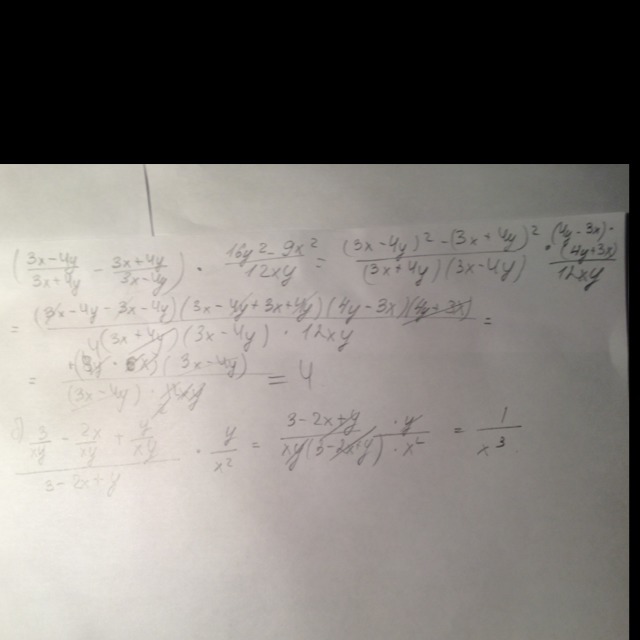 (3x-4y/3x+4y - 3x+4y/3x-4y) · 16y²-9x²/12xy = (3x-4y)²-(3x+4y)²/(3x+4y)(3x-4y) · (4y-3x)·(4y+3x)/12xy
= (3x-4y-3x-4y)(3x-4y+3x+4y)(4y-3x)(4y+3x)/(3x+4y)(3x-4y)·12xy =
= (3x-4y)/(3x-4y) = 4
3/xy - 2x/xy + y/xy/3-2x+y · y/x² = 3-2x+y · y/xy(3-2x+y)·x² = 1/x³